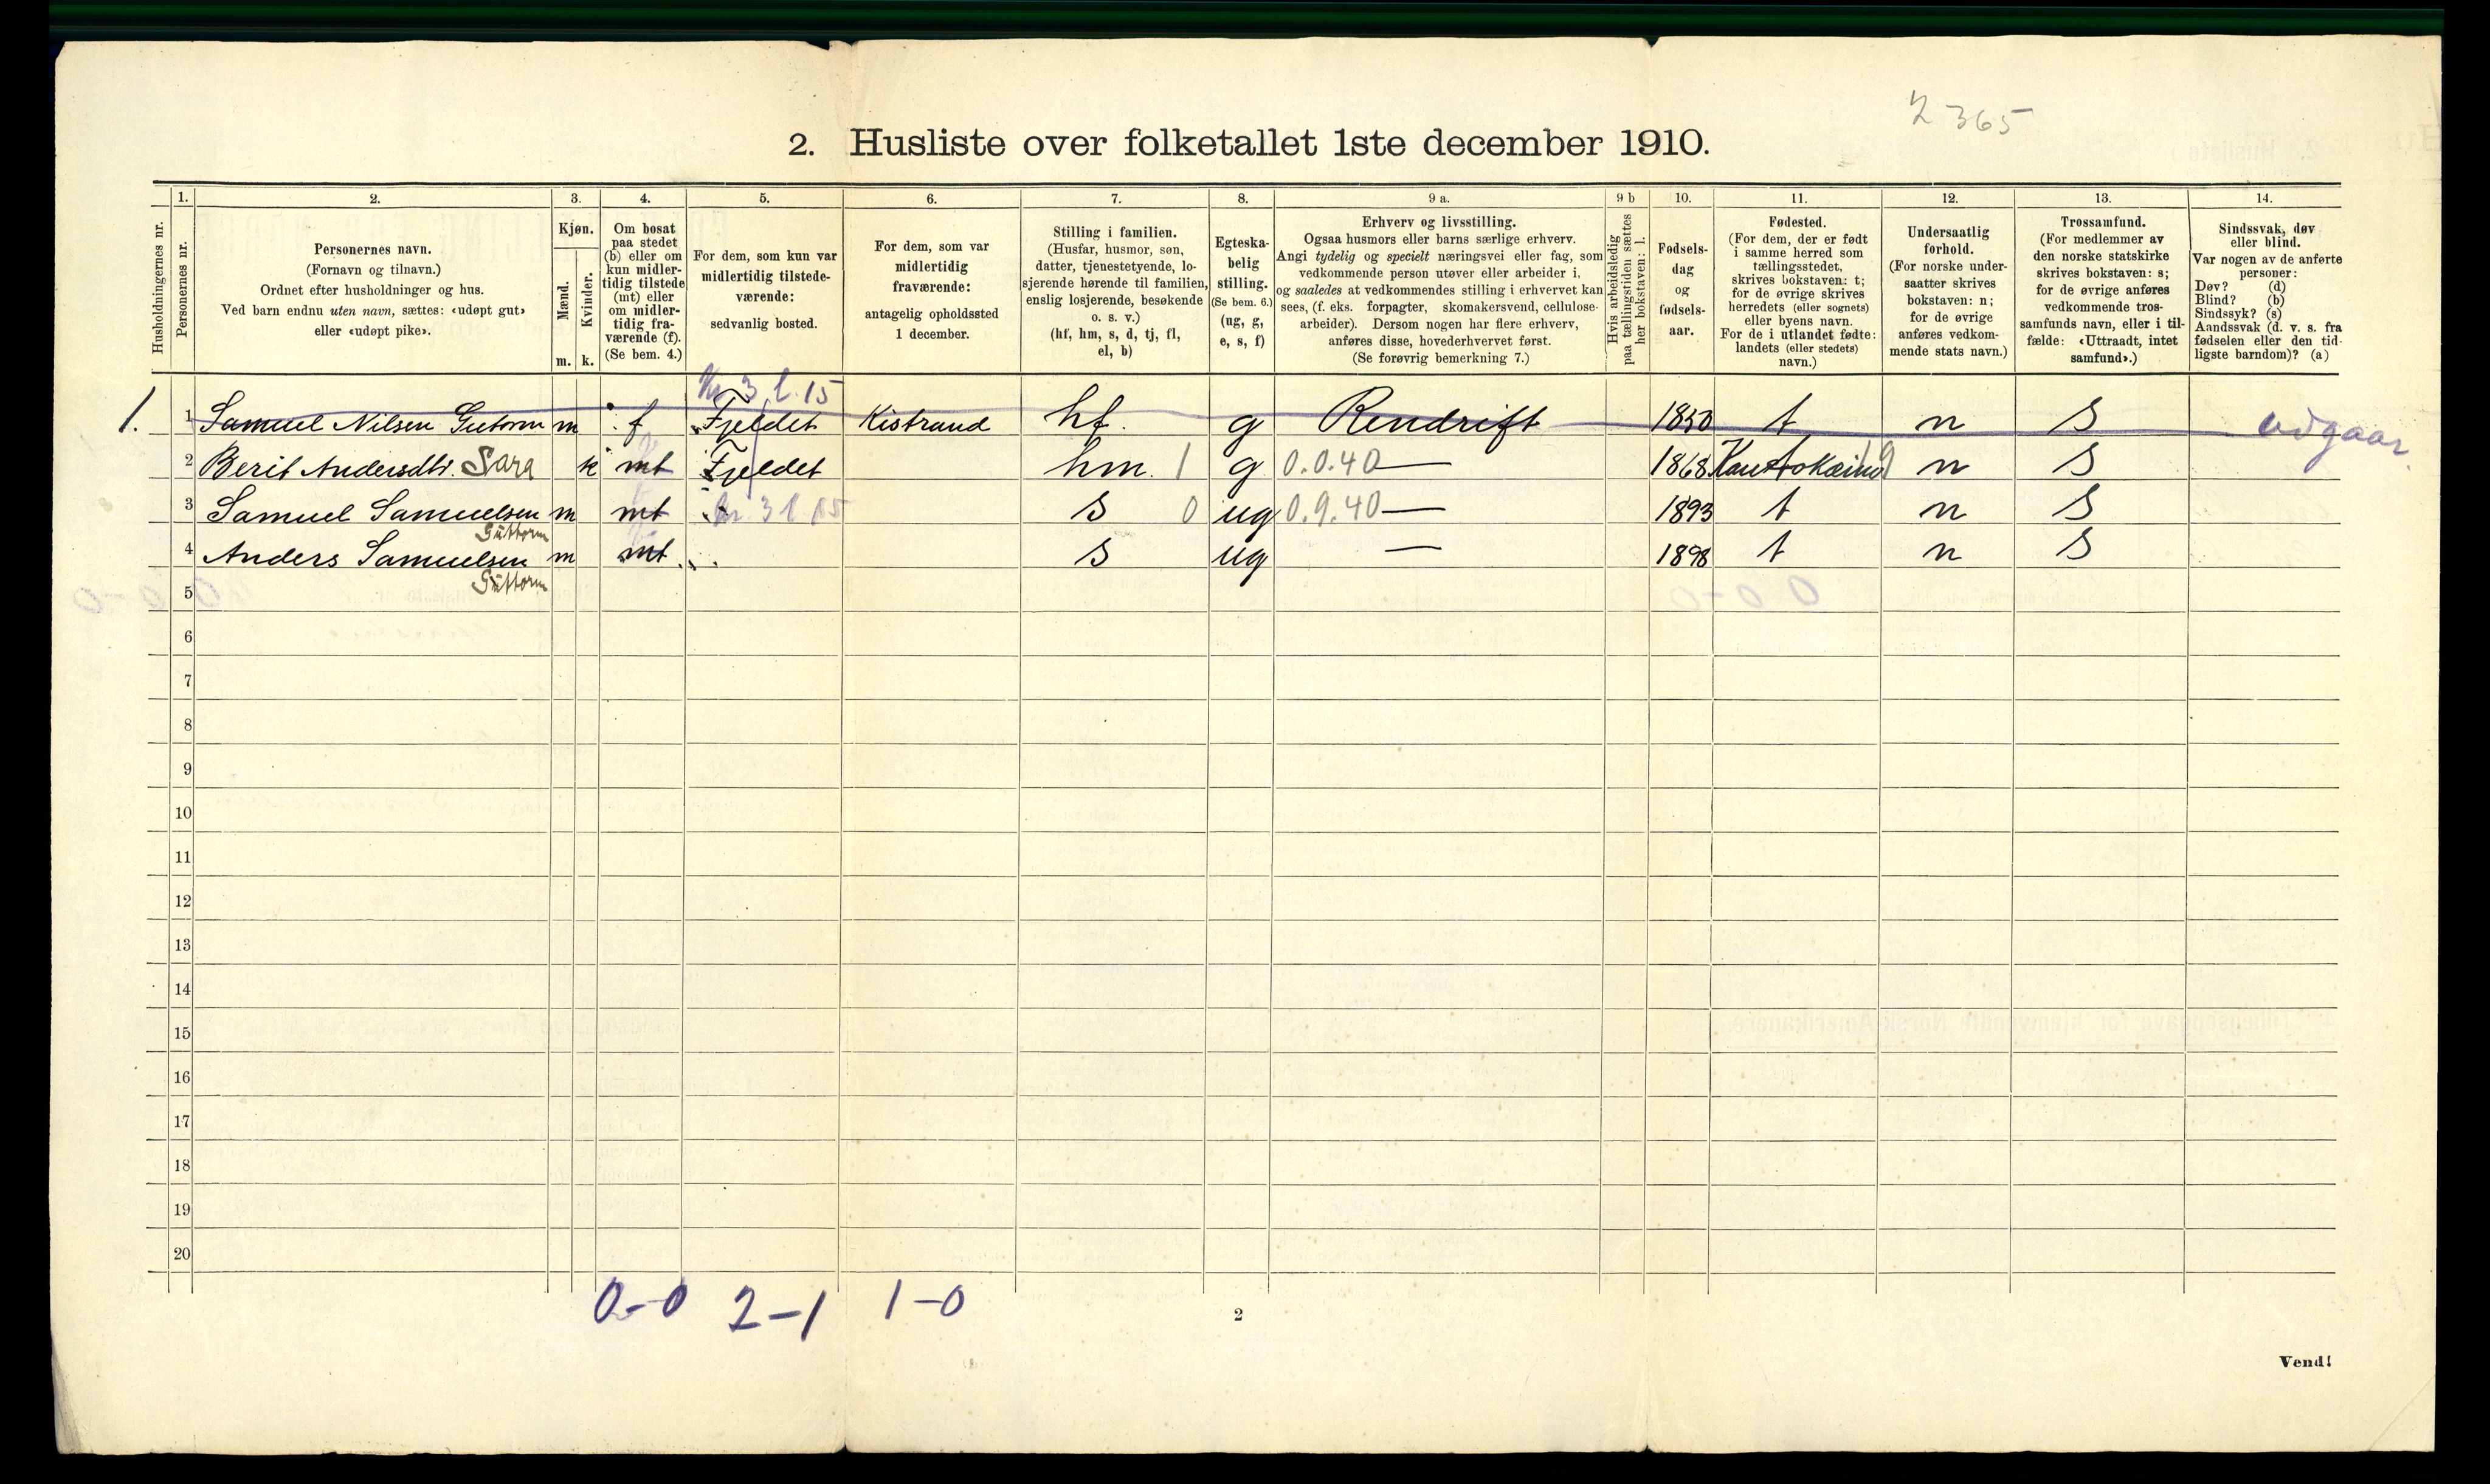 2 365
2. Husliste over folketallet 1ste december 1910.
Husholdningernes nr.
1.
Personernes nr.
2.
Personernes navn.
(Fornavn og tilnavn.)
Ordnet efter husholdninger og hus.
Ved barn endnu uten navn, sættes: «udøpt gut»
eller «udøpt pike».
3.
Kjøn.
Mænd.
Kvinder.
m. k.
4.
Om bosat
paa stedet
(b) eller om
kun midler-
tidig tilstede
(mt) eller
om midler-
tidig fra-
værende (f).
(Se bem. 4.)
5.
For dem, som kun var
midlertidig tilstede-
værende:
sedvanlig bosted.
6.
For dem, som var
midlertidig
fraværende:
antagelig opholdssted
1 december.
7.
Stilling i familien.
(Husfar, husmor, søn,
datter, tjenestetyende, lo-
sjerende hørende til familien,
enslig losjerende, besøkende
o. s. v.)
(hf, hm, s, d, tj, fl,
el, b)
8.
Egteska-
belig
stilling.
(Se bem. 6.)
(ug, g,
e, s, f)
9 a.
Erhverv og livsstilling.
Ogsaa husmors eller barns særlige erhverv.
Angi tydelig og specielt næringsvei eller fag, som
vedkommende person utøver eller arbeider i,
og saaledes at vedkommendes stilling i erhvervet kan
sees, (f. eks. forpagter, skomakersvend, cellulose-
arbeider). Dersom nogen har flere erhverv,
anføres disse, hovederhvervet først.
(Se forøvrig bemerkning 7.)
9 b
Hvis arbeidsledig
paa tællingstiden sættes
her bokstaven: l.
10.
Fødsels-
dag
og
fødsels-
aar.
11.
Fødested.
(For dem, der er født
i samme herred som
tællingsstedet,
skrives bokstaven: t;
for de øvrige skrives
herredets (eller sognets)
eller byens navn.
For de i utlandet fødte:
landets (eller stedets)
navn.)
12.
Undersaatlig
forhold.
(For norske under-
saatter skrives
bokstaven: n;
for de øvrige
anføres vedkom-
mende stats navn.)
13.
Trossamfund.
(For medlemmer av
den norske statskirke
skrives bokstaven: s;
for de øvrige anføres
vedkommende tros-
samfunds navn, eller i til-
fælde: «Uttraadt, intet
samfund».)
14.
Sindssvak, døv
eller blind.
Var nogen av de anførte
personer:
Døv? (d)
Blind? (b)
Sindssyk? (s)
Aandssvak (d. v. s. fra
fødselen eller den tid-
ligste barndom)? (a)
3 l. 15
1. 1 Samuel Nilsen Gutorm m f Fjeldet Kistrand hf. g Rendrift 1850 t n S udgaar.
2 Berit Andersdtr. Sara k mt Fjeldet hm. 1 g 0.0.40 — 1868 Kautokeino n S
3 Samuel Samuelsen m mt 3 l. 15 s 0 ug 0.9.40 — 1893 t n S
Guttorm
4 Anders Samuelsen m mt s ug — 1898 t n S
Guttorm
5
6
7
8
9
10
11
12
13
14
15
16
17
18
19
20
0-0 2-1 1-0
2
Vend!